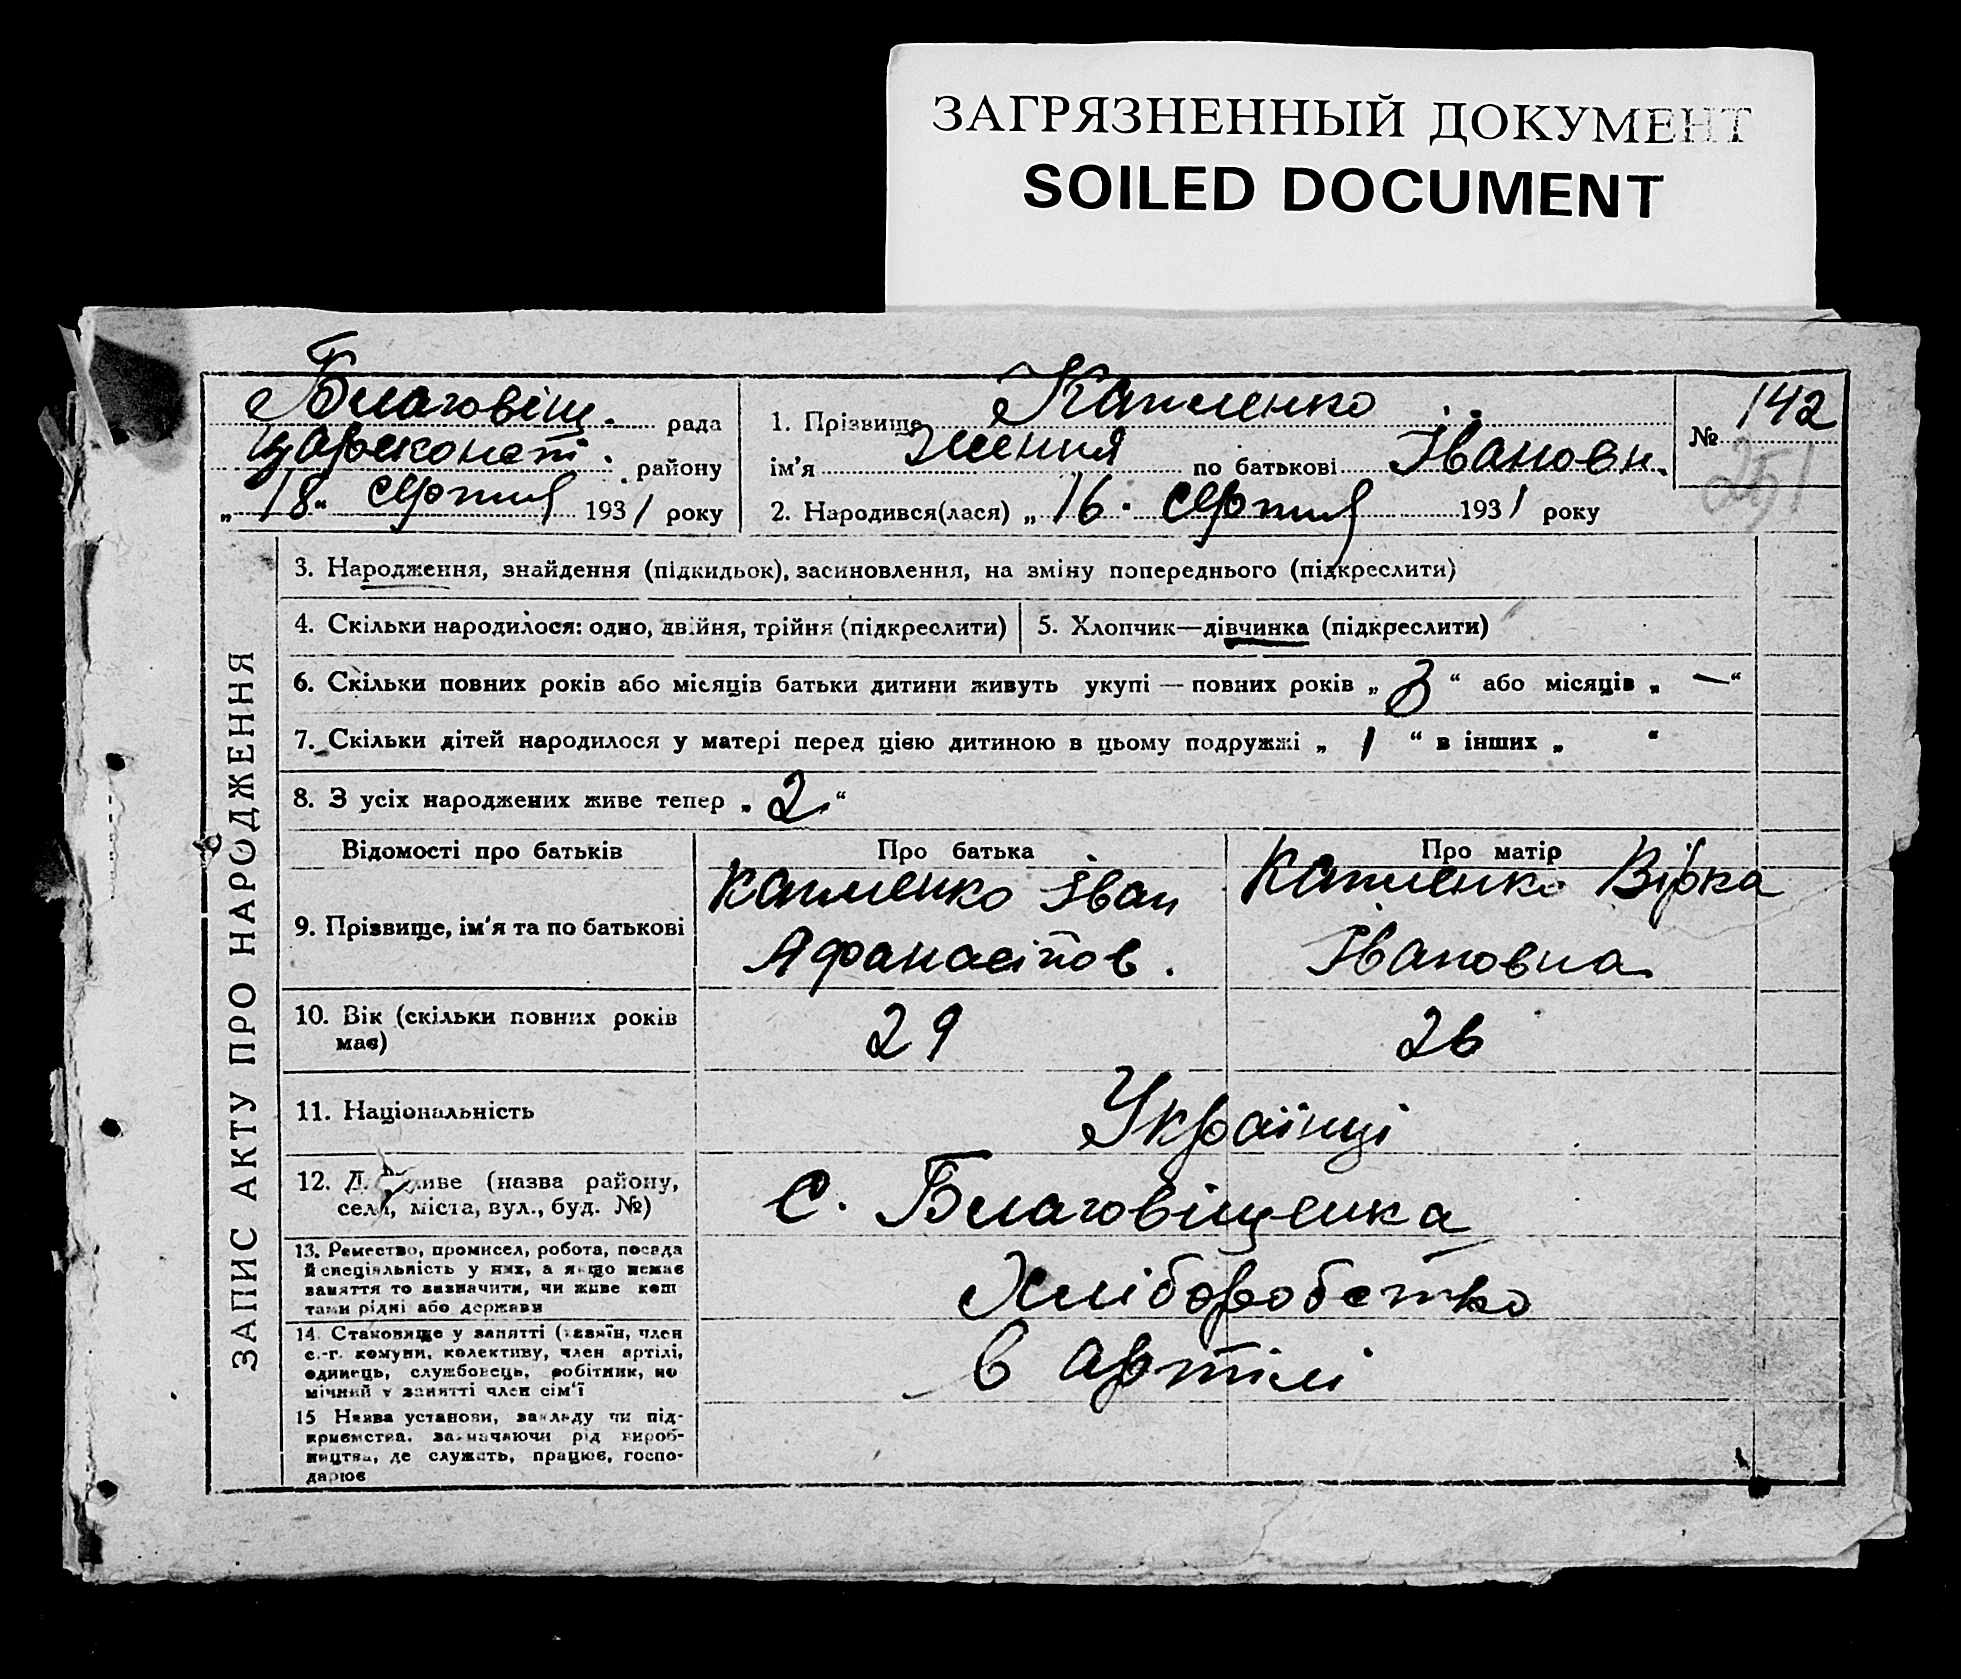 ЗАГРЯЗНЕННЫЙ ДОКУМЕНТ
SOILED DOCUMENT
Благовіщ. рада
Царекконст. району
„18“ серпня 1931 року
1. Прізвище Капленко
ім'я Ження по батькові Івановн.
2. Народився(лася) „16. серпня 1931 року
№ 142
251
ЗАПИС АКТУ ПРО НАРОДЖЕННЯ
3. Народження, знайдення (підкидьок), засиновлення, на зміну попереднього (підкреслити)
4. Скільки народилося: одно, двійня, трійня (підкреслити)
5. Хлопчик—дівчинка (підкреслити)
6. Скільки повних років або місяців батьки дитини живуть укупі — повних років „3“ або місяців „—“
7. Скільки дітей народилося у матері перед цією дитиною в цьому подружжі „1“ в інших „ “
8. З усіх народжених живе тепер „2“
Відомості про батьків
Про батька
Про матір
9. Прізвище, ім'я та по батькові
Капленко Іван
Афанасійов.
Капленко Вірка
Івановна
10. Вік (скільки повних років
має)
29
26
11. Національність
Українці
12. Д. живе (назва району,
села, міста, вул., буд. №)
С. Благовіщенка
13. Ремество, промисел, робота, посада
й спеціяльність у них, а якщо немає
заняття то визначити, чи живе кош
тами рідні або держави
Хліборобство
14. Становище у занятті (хазяїн, член
с.-г. комуни, колективу, член артілі,
одинець, службовець, робітник, по
мічний у занятті член сім'ї
в артілі
15 Назва установи, закладу чи під-
приємства, зазначаючи рід вироб-
ництва, де служить, працює, госпо-
дарює